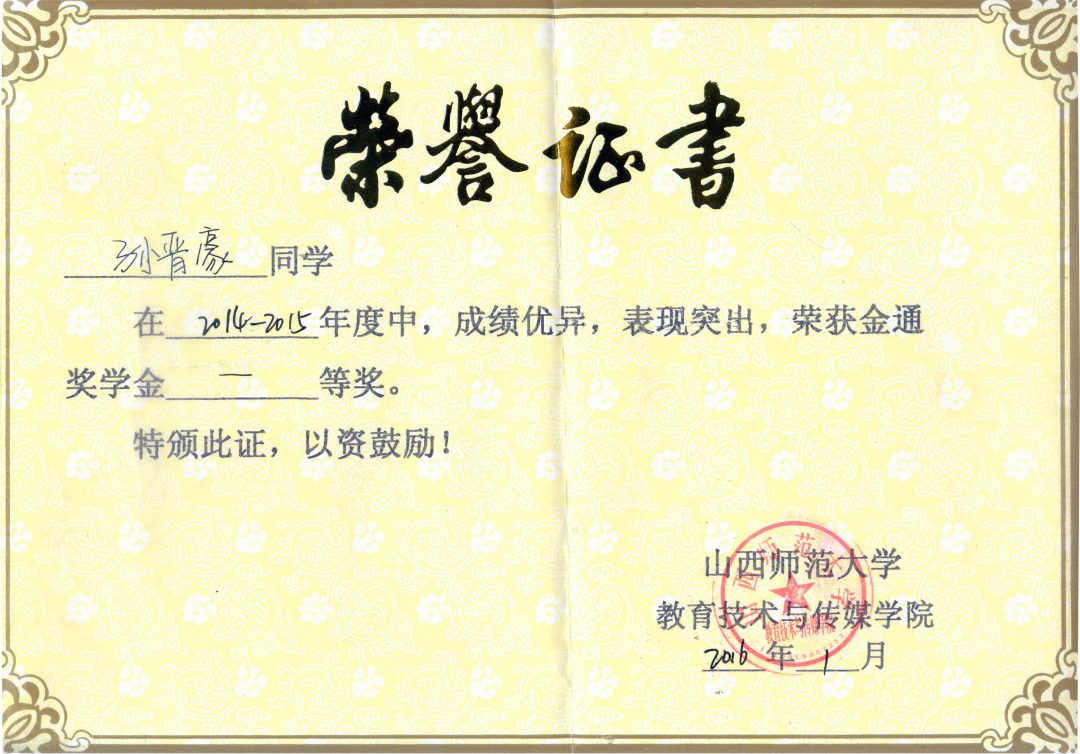 荣誉证书
孙晋豪同学
在2014-2015年度中，成绩优异，表现突出，荣获金通
奖学金一等奖。
特颁此证，以资鼓励！
山西师范大学
教育技术与传媒学院
2016年1月
山西师范大学
教育技术与传媒学院